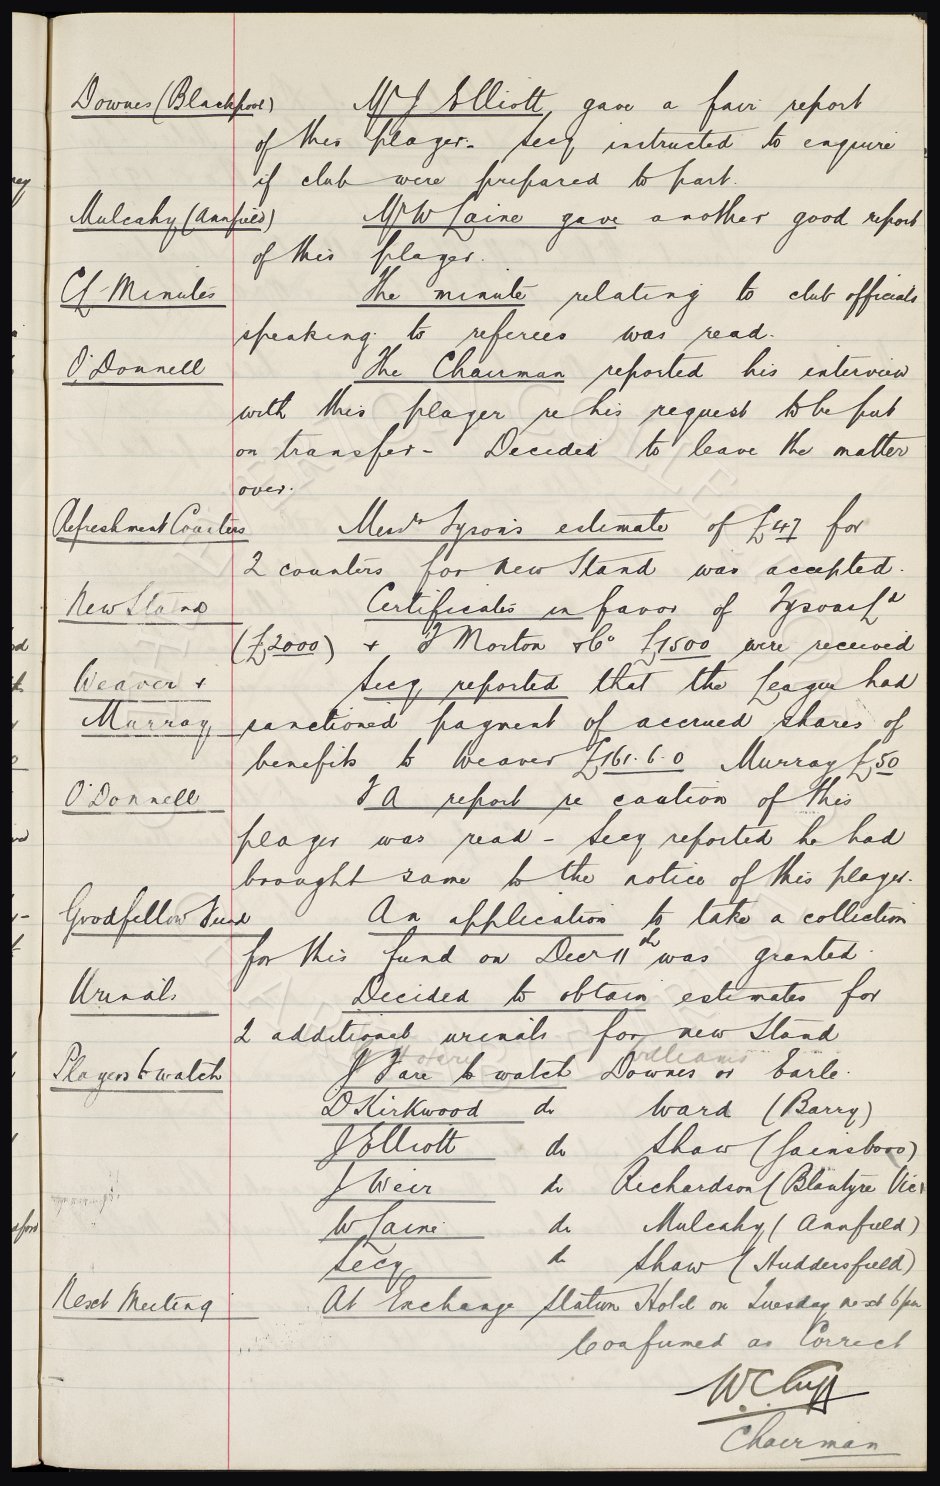 Downes (Blackpool) Mr J Elliott gave a fair report
of this player. Secy instructed to enquire
if club were prepared to part.
Mulcahy (Annfield) Mr W Laine gave another good report
of this player.
CL Minutes The minute relating to club officials
speaking to referees was read.
O'Donnell The Chairman reported his interview
with this player re his request to be put
on transfer - Decided to leave the matter
over.
Refreshment Counters Messrs Tyson's estimate of £47 for
2 counters for New Stand was accepted.
New Stand Certificates in favor of Tysons Ld
(£2000) + F Morton & Co £1500 were received
Weaver + Secy reported that the League had
Murray sanctioned payment of accrued shares of
benefits to Weaver £161.6.0 Murray £50
O'Donnell F A report re caution of this
player was read - Secy reported he had
brought same to the notice of this player.
Goodfellow Fund An application to take a collection
for this fund on Decr 11th was granted.
Urinals Decided to obtain estimates for
2 additional urinals for new Stand
williams
Players to watch J Fare to watch Downes or Earle.
D Kirkwood do Ward (Barry)
J Elliott do Shaw (Gainsboro)
J Weir do Richardson (Blantyre Vics
W Laine do Mulcahy (Annfield)
Secy do Shaw (Huddersfield)
Next Meeting At Exchange Station Hotel on Tuesday next 6 pm
Confirmed as Correct
W C Cuff
Chairman